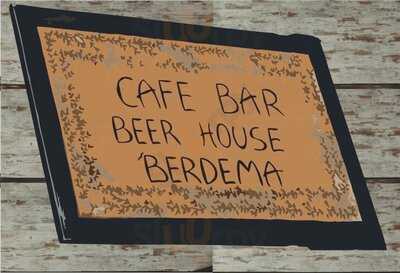 CAFE BAR
BEER HOUSE
'BERDEMA